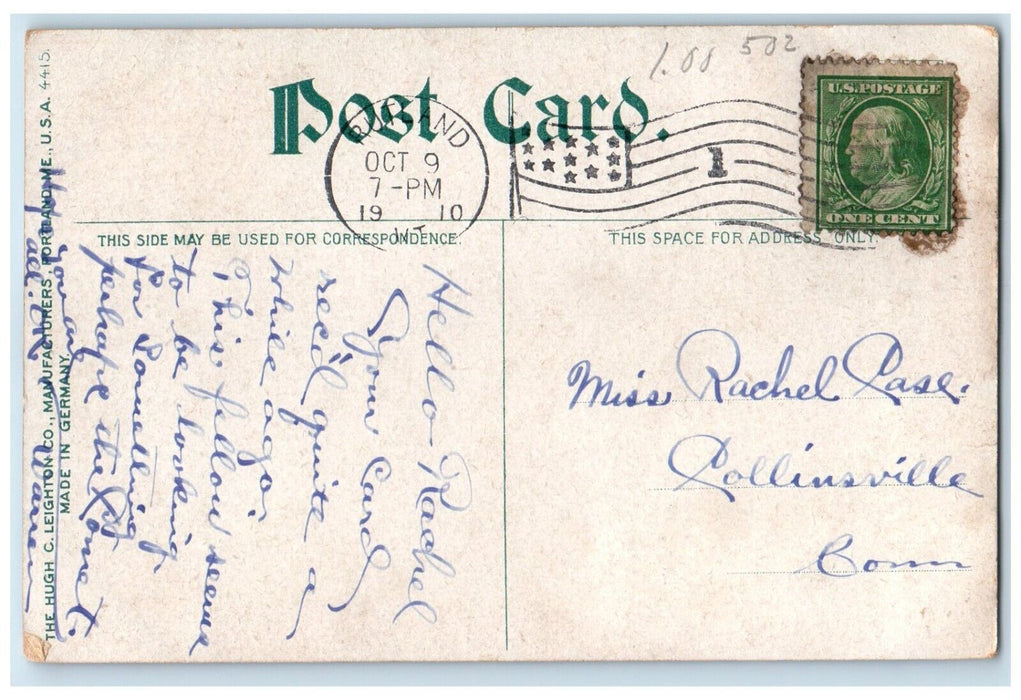 1.00 502
Post Card.
RUTLAND
OCT 9
7-PM
19 10
VT
1
U.S. POSTAGE
ONE CENT
THIS SIDE MAY BE USED FOR CORRESPONDENCE.
THIS SPACE FOR ADDRESS ONLY.
THE HUGH C. LEIGHTON CO., MANUFACTURERS, PORTLAND, ME., U.S.A. 4415.
MADE IN GERMANY.
Hello Rachel
Your Card
rec'd quite a
while ago.
This fellow seems
to be looking
for Something
perhaps the Comet.
Hope you are
all
Miss Rachel Case.
Collinsville
Conn